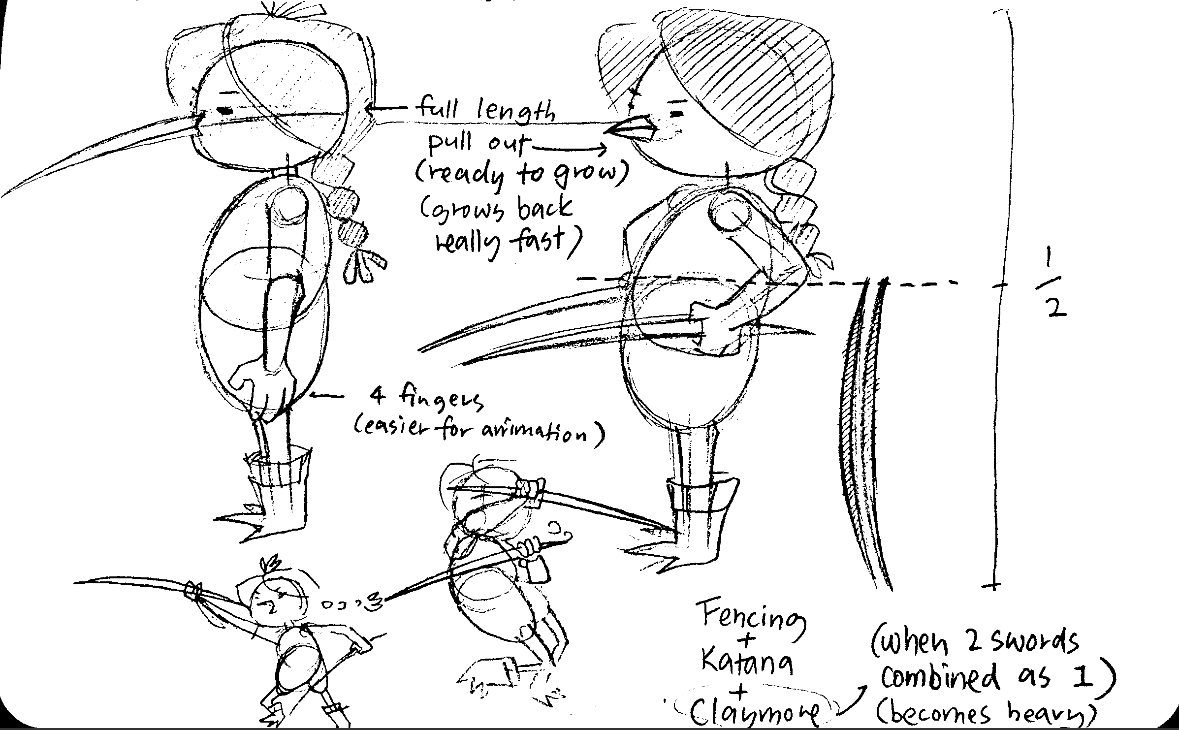 full length
pull out
(ready to grow)
(grows back
really fast)
1/2
4 fingers
(easier for animation)
Fencing
+
Katana
+
Claymore
(when 2 swords
combined as 1)
(becomes heavy)